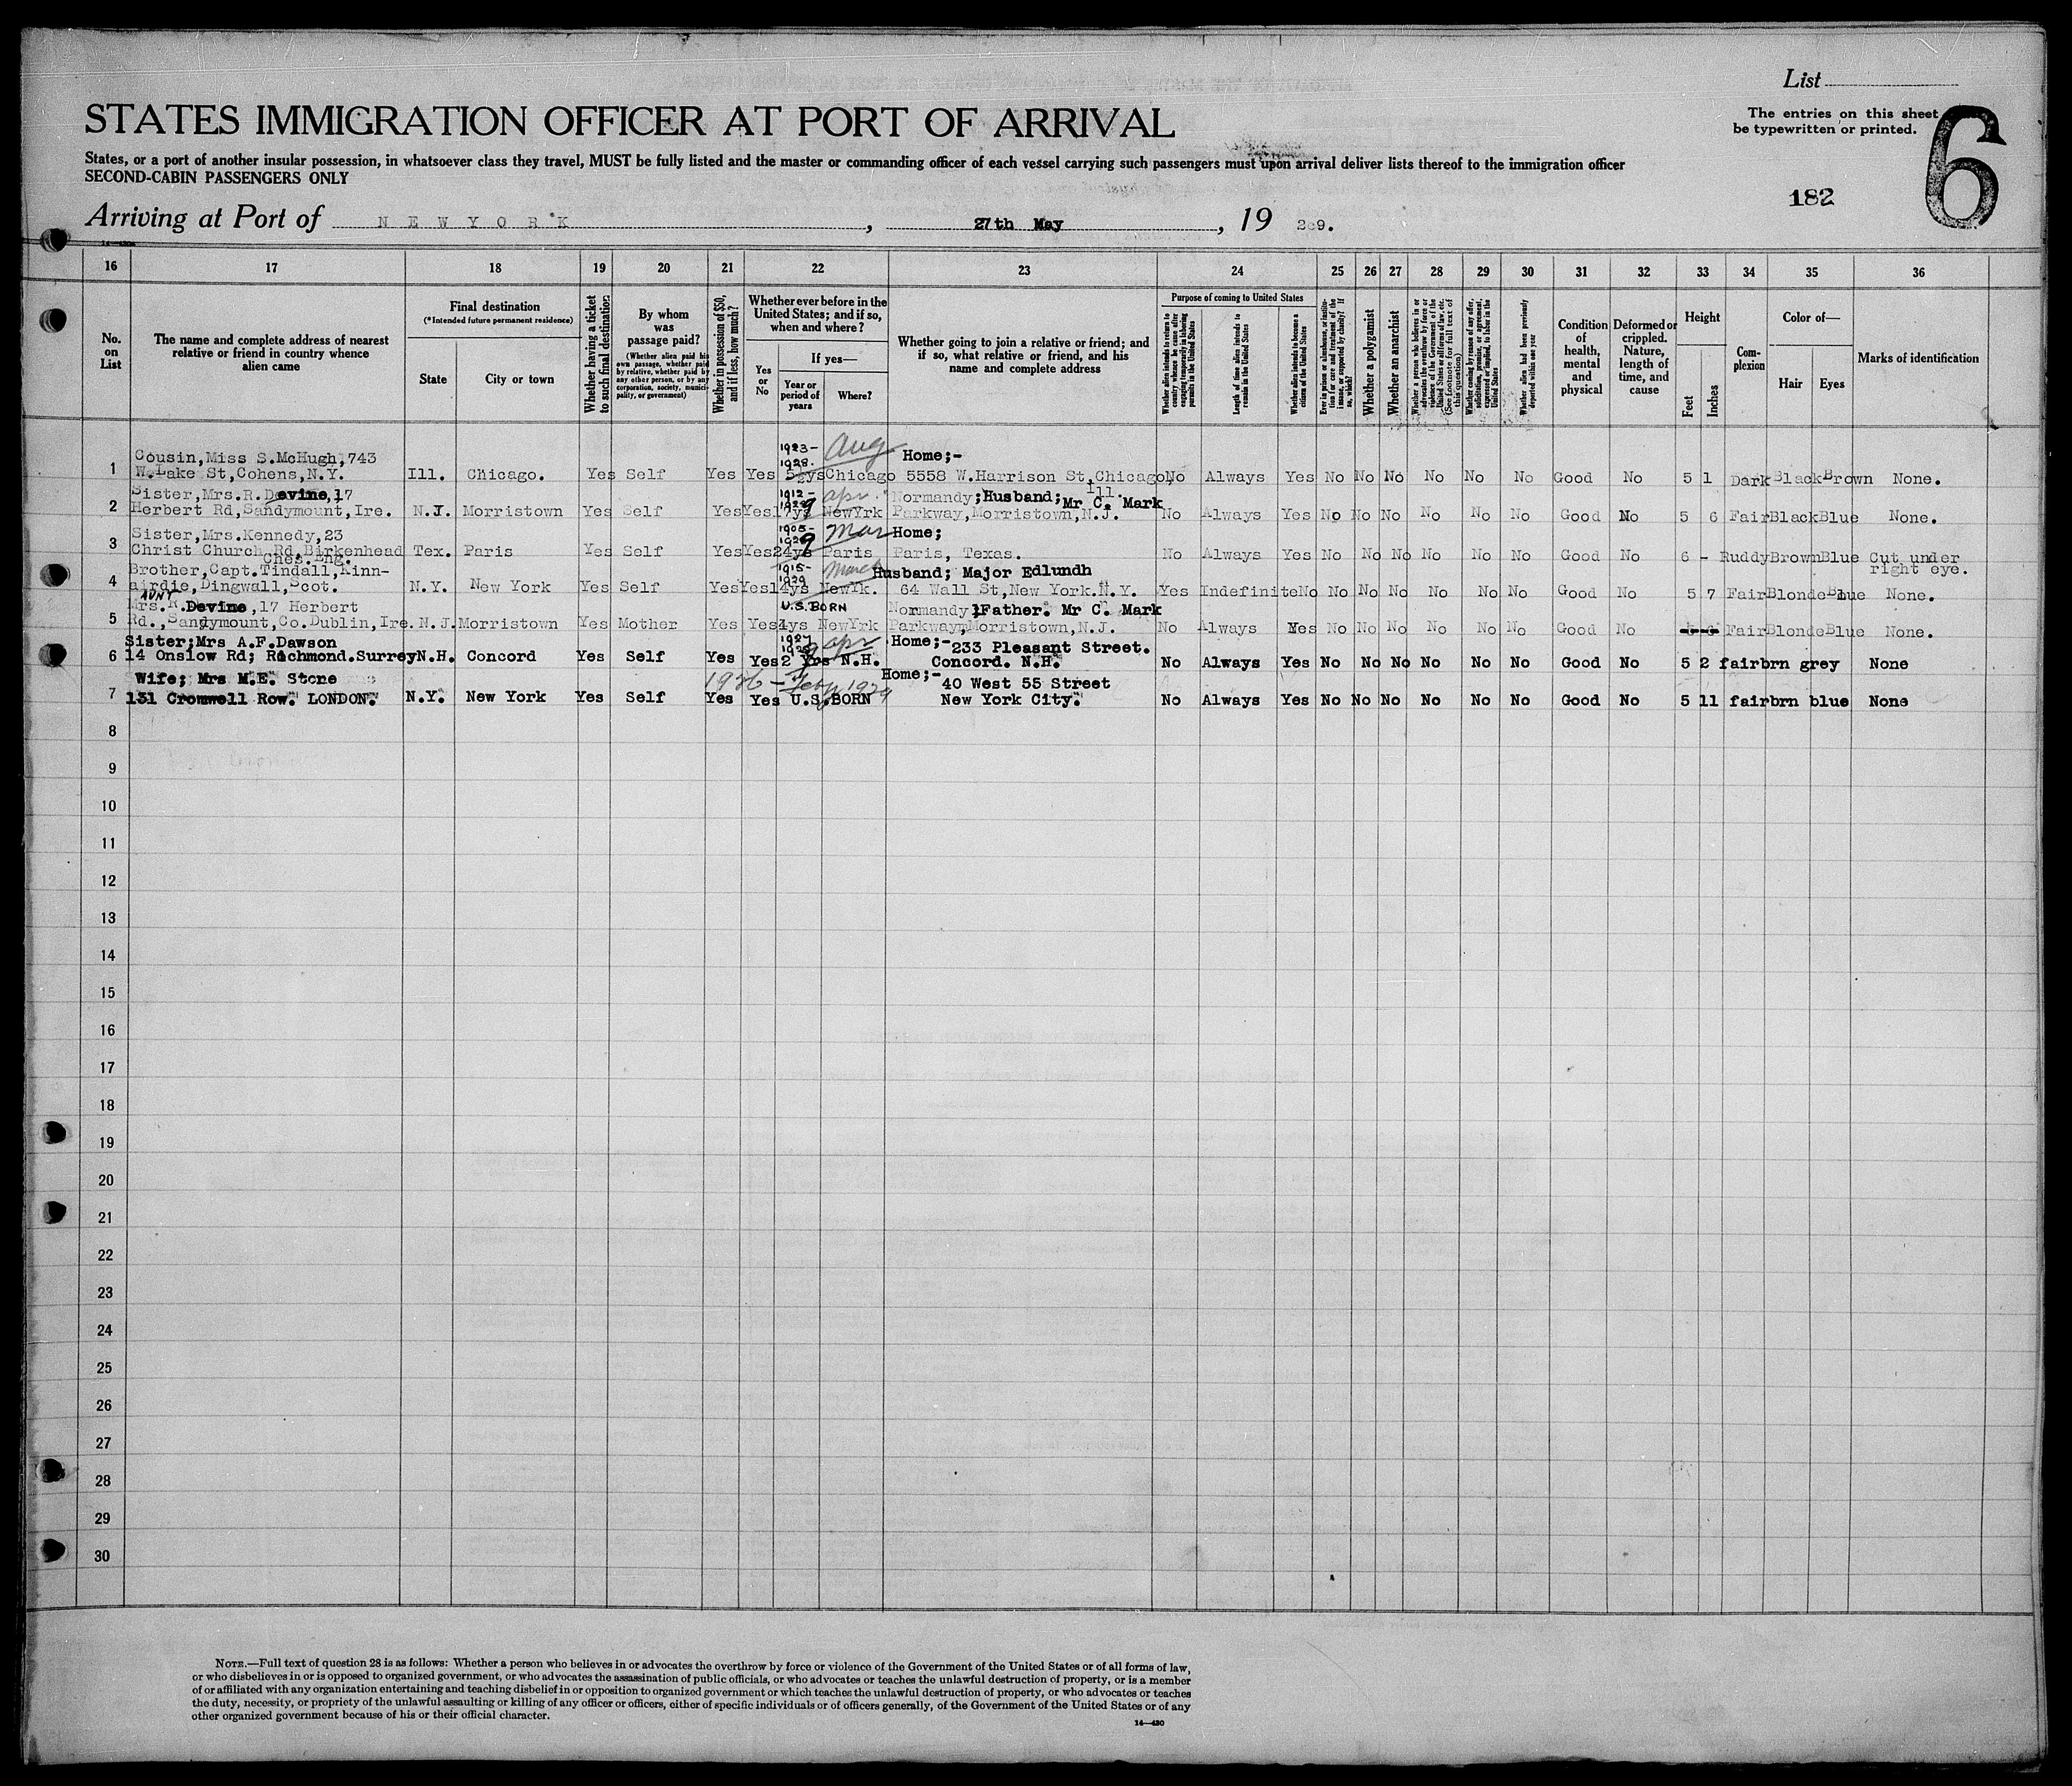 List
The entries on this sheet
be typewritten or printed.
6
182
STATES IMMIGRATION OFFICER AT PORT OF ARRIVAL
States, or a port of another insular possession, in whatsoever class they travel, MUST be fully listed and the master or commanding officer of each vessel carrying such passengers must upon arrival deliver lists thereof to the immigration officer
SECOND-CABIN PASSENGERS ONLY
Arriving at Port of N E W Y O R K , 27th May , 19 29.
16 17 18 19 20 21 22 23 24 25 26 27 28 29 30 31 32 33 34 35 36
No. on List
The name and complete address of nearest relative or friend in country whence alien came
Final destination
(*Intended future permanent residence)
State
City or town
Whether having a ticket to such final destination
By whom was passage paid?
(Whether alien paid his own passage, whether paid by relative, whether paid by any other person, or by any corporation, society, municipality, or government)
Whether in possession of $50, and if less, how much?
Whether ever before in the United States; and if so, when and where?
Yes or No
If yes—
Year or period of years
Where?
Whether going to join a relative or friend; and if so, what relative or friend, and his name and complete address
Purpose of coming to United States
Whether alien intends to return to country whence he came after engaging temporarily in laboring pursuit in the United States
Length of time alien intends to remain in the United States
Whether alien intends to become a citizen of the United States
Ever in prison or almshouse, or institution for care and treatment of the insane, or supported by charity? If so, which?
Whether a polygamist
Whether an anarchist
Whether coming by reason of any offer, solicitation, promise, or agreement, expressed or implied, to labor in the United States
Whether alien had been previously deported within one year
Condition of health, mental and physical
Deformed or crippled. Nature, length of time, and cause
Height
Feet
Inches
Complexion
Color of—
Hair
Eyes
Marks of identification
Cousin,Miss S.McHugh,743 1923- Aug Home;-
1928.
1 W.Lake St,Cohens,N.Y. Ill. Chicago. Yes Self Yes Yes 5ys Chicago 5558 W.Harrison St,Chicago, No Always Yes No No No No No No Good No 5 1 Dark Black Brown None.
Ill.
Sister,Mrs.R.Devine,17 1912- apr. Normandy;Husband; Mr C. Mark
2 Herbert Rd,Sandymount,Ire. N.J. Morristown Yes Self Yes Yes 17ys NewYrk Parkway,Morristown,N.J. No Always Yes No No No No No No Good No 5 6 Fair Black Blue None.
Sister,Mrs.Kennedy,23 1905- Mar Home;
3 Christ Church Rd,Birkenhead Tex. Paris Yes Self Yes Yes 24ys Paris Paris, Texas. No Always Yes No No No No No No Good No 6 - Ruddy Brown Blue Cut under
Ches.Eng. right eye.
Brother,Capt.Tindall,Kinn- 1915- March Husband; Major Edlundh
1929
4 airdie,Dingwall,Scot. N.Y. New York Yes Self Yes Yes 14ys NewYk. 64 Wall St,New York.N.Y. Yes Indefinite No No No No No No No Good No 5 7 Fair Blonde Blue None.
AUNT
Mrs.R.Devine,17 Herbert U.S.BORN Normandy Father. Mr C. Mark
5 Rd.,Sandymount,Co.Dublin,Ire. N.J. Morristown Yes Mother Yes Yes 4ys NewYrk Parkway,Morristown,N.J. No Always Yes No No No No No No Good No Fair Blonde Blue None.
Sister;Mrs A.F.Dawson 1927 apr Home;-233 Pleasant Street.
6 14 Onslow Rd; Richmond.Surrey N.H. Concord Yes Self Yes Yes 2 Yrs N.H. Concord. N.H. No Always Yes No No No No No No Good No 5 2 fair brn grey None
Wife; Mrs M.E. Stone 1926 - Feby 1929 Home;- 40 West 55 Street
7 131 Cromwell Row. LONDON. N.Y. New York Yes Self Yes Yes U.S.BORN New York City. No Always Yes No No No No No No Good No 5 11 fair brn blue None
8
9
10
11
12
13
14
15
16
17
18
19
20
21
22
23
24
25
26
27
28
29
30
NOTE.—Full text of question 28 is as follows: Whether a person who believes in or advocates the overthrow by force or violence of the Government of the United States or of all forms of law,
or who disbelieves in or is opposed to organized government, or who advocates the assassination of public officials, or who advocates or teaches the unlawful destruction of property, or is a member
of or affiliated with any organization entertaining and teaching disbelief in or opposition to organized government or which teaches the unlawful destruction of property, or who advocates or teaches
the duty, necessity, or propriety of the unlawful assaulting or killing of any officer or officers, either of specific individuals or of officers generally, of the Government of the United States or of any
other organized government because of his or their official character.
14—430